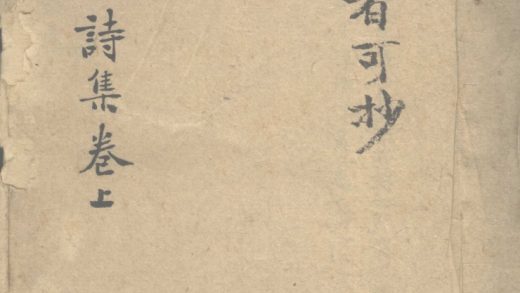 可抄
詩集卷上